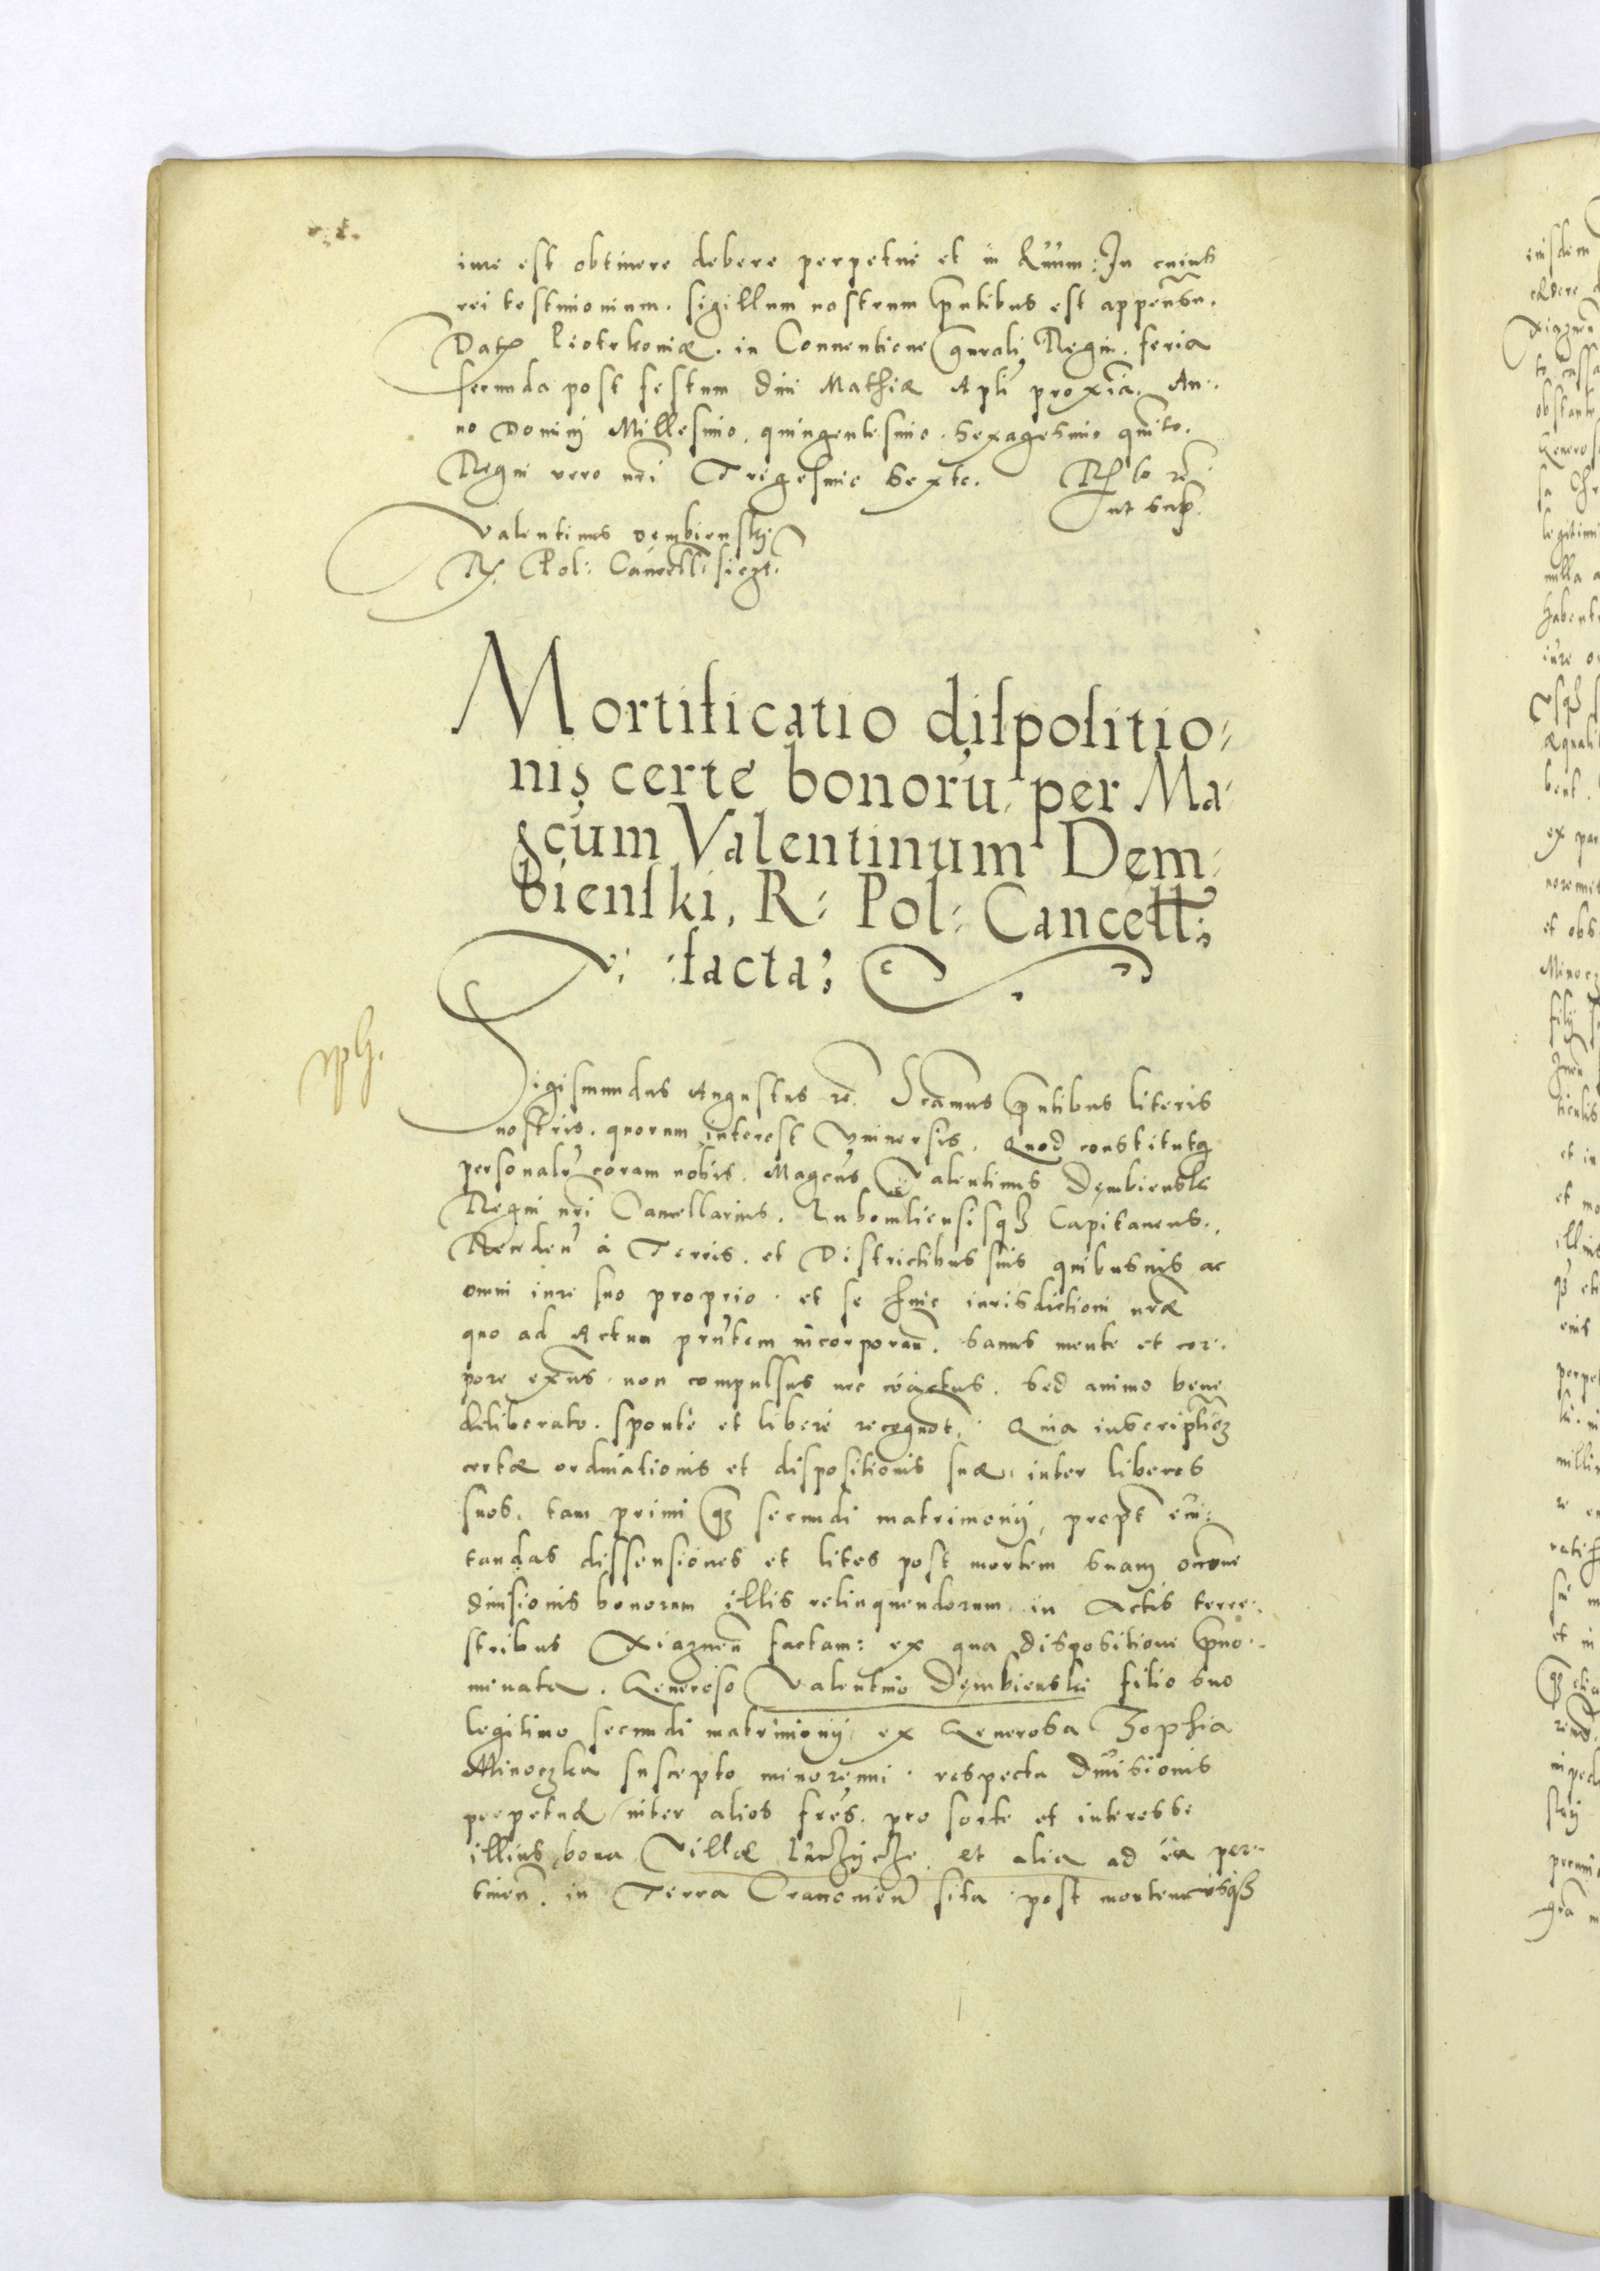 iure est obtinere debere perpetue et in evum: In cuius
rei testimonium. sigillum nostrum pntibus est appensu.
Dat Piotrkoviæ. in Conventione gnrali Regni. feria
secunda post festum divi Mathiæ Apli proxīa. An-
no Domini Millesimo, quingentesimo. Sexagesimo quinto.
Regni vero nri Trigesimo Sexto.
ut sup.
Valentinus Dembienski
R. Pol: Cancell: sspt.
Mortificatio dispositio-
nis certe bonorū, per Ma-
gcum Valentinum Dem-
bienski, R: Pol: Cancell:
facta:
Sigismundus Augustus rē. Scamus pntibus literis
nostris. quorum interest Universis. Quod constitutq
personalr coram nobis. Magcus Valentinus Dęmbienski
Regni nri Cancellarius. Lubomliensisq Capitaneus.
Receden à Terris. et Districtibus suis quibusvis ac
omni iure suo proprio. et se huic iurisdictioni nræ
quo ad Actum prntem incorporan. Sanus mente et cor-
pore exns. non compulsus nec coactus. Sed animo bene
deliberato. sponte et libere recognot. Quia inscriptioēz
certæ ordinationis et dispositionis suæ. inter liberos
suos. tam primi qz secundi matrimonij, propt evi-
tandas dissensiones et lites post mortem suam. oēone
divisionis bonorum illis relinquendorum. in Actis terre-
stribus Xiaznen factam: ex qua dispositione pno-
minata. Generoso Valentino Dęmbienski filio suo
legitimo secundi matrimonij ex Generosa Zophia
Minoczka suscepto minorenni. respectu divisionis
perpetuæ inter alios fres. pro sorte et interesse
illius bona Villæ Luczycze. et alia ad ea per-
tinen. in Terra Cracovien sita post mortem usq